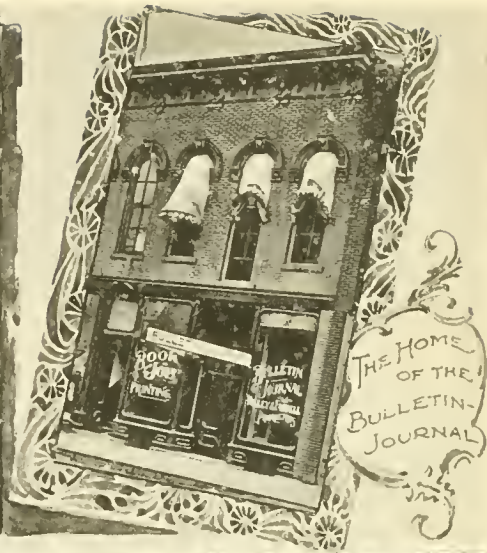 BOOK
& JOB
PRINTING
BULLETIN
JOURNAL
THE HOME
OF THE
BULLETIN-
JOURNAL